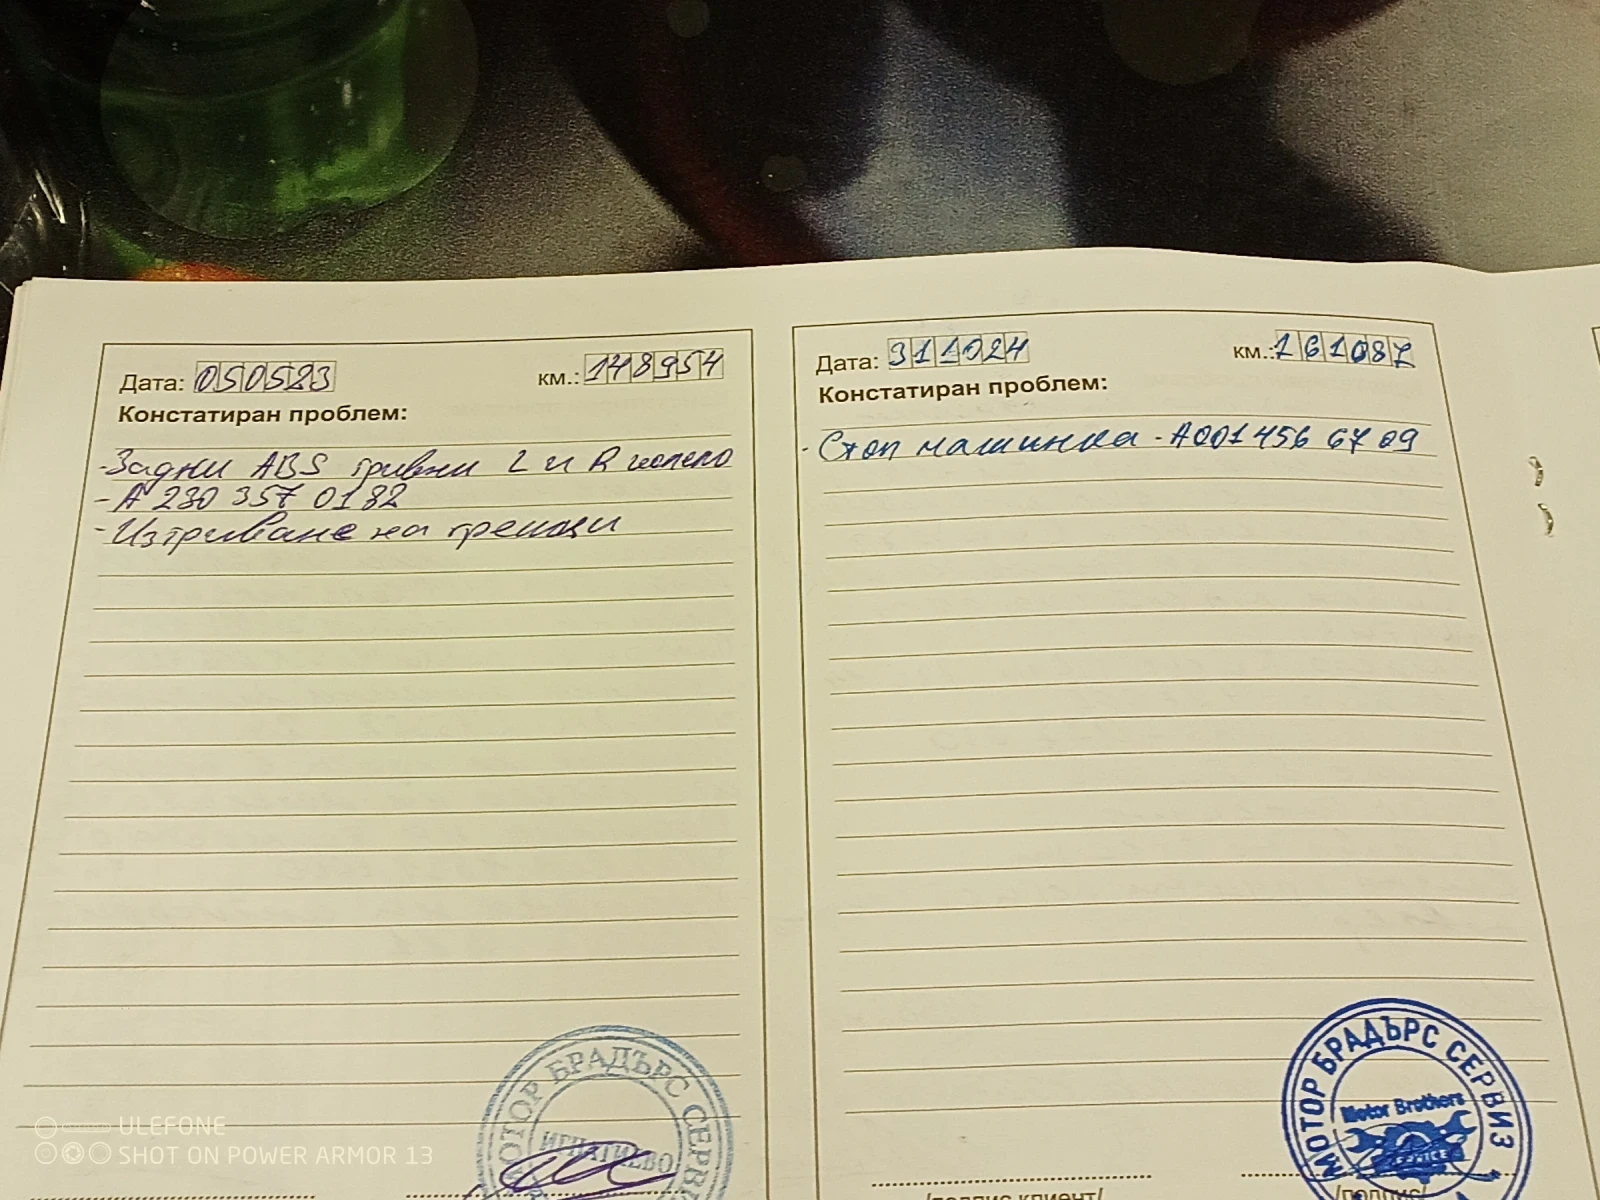 Дата: 050523 км.: 148954
Констатиран проблем:
-Задни ABS гривни L и R
-А 230 357 0182
-Изтриване на грешки
МОТОР БРАДЪРС СЕРВИЗ
ИГНАТИЕВО
Дата: 311024 км.: 161087
Констатиран проблем:
- Стоп машинка - А001 456 67 09
МОТОР БРАДЪРС СЕРВИЗ
Motor Brothers
SERVICE
/подпис клиент/ /подпис/
ULEFONE
SHOT ON POWER ARMOR 13